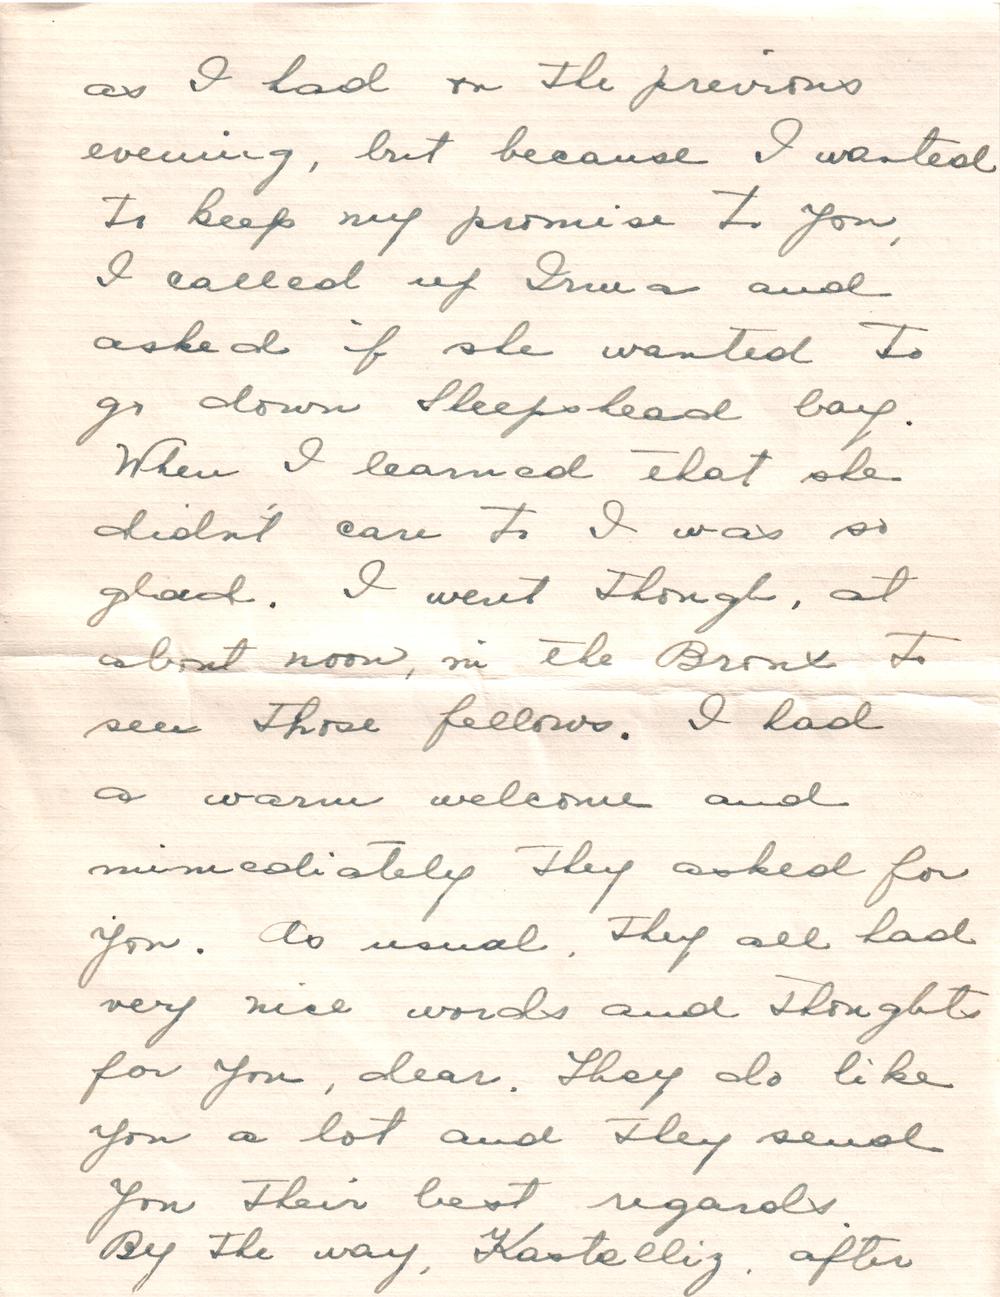 as I had on the previous
evening, but because I wanted
to keep my promise to you,
I called up Irma and
asked if she wanted to
go down Sleepshead bay.
When I learned that she
didn't care to I was so
glad. I went though, at
about noon, in the Bronx to
see those fellows. I had
a warm welcome and
immediately they asked for
you. As usual, they all had
very nice words and thoughts
for you, dear. They do like
you a lot and they send
you their best regards.
By the way, Kastelliz, after